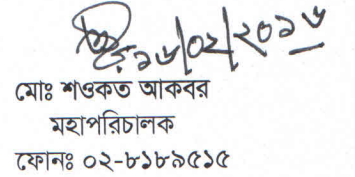 ১৬/০২/২০১৬
মোঃ শওকত আকবর
মহাপরিচালক
ফোনঃ ০২-৮১৮৯৫১৫